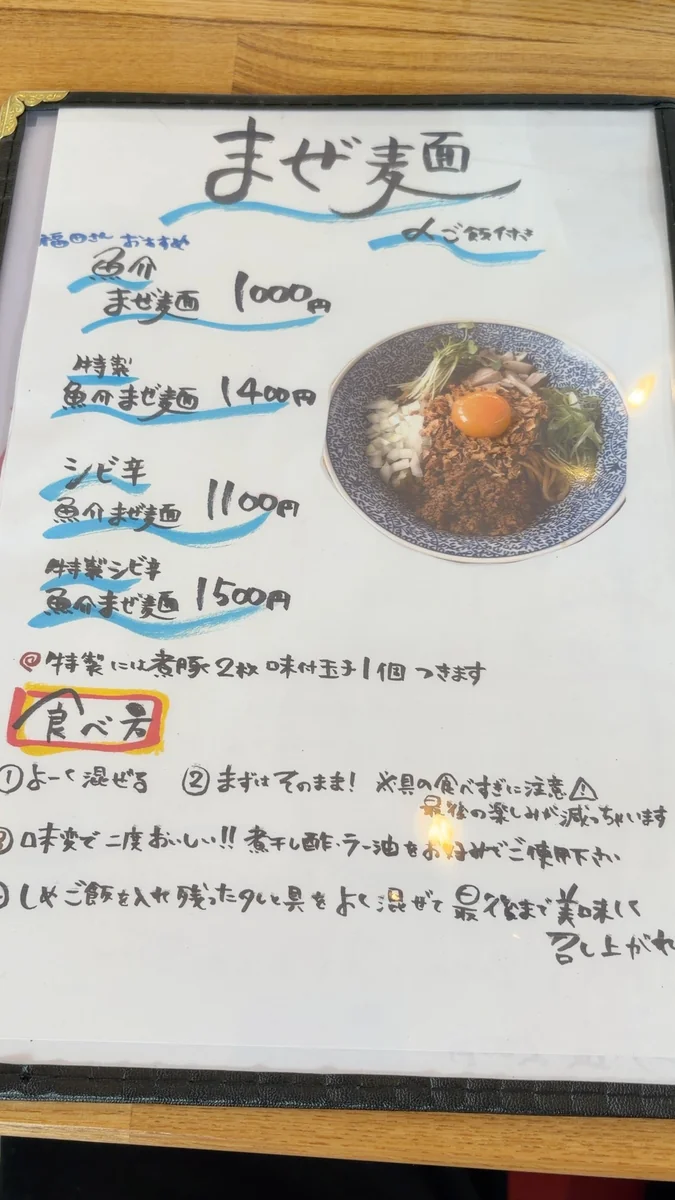 まぜ麺
〆ご飯付き
福田さん おすすめ
魚介
まぜ麺 1000円
特製
魚介まぜ麺 1400円
シビ辛
魚介まぜ麺 1100円
特製シビ辛
魚介まぜ麺 1500円
@特製には煮豚2枚 味付玉子1個 つきます
食べ方
①よーく混ぜる ②まずはそのまま! ※具の食べすぎに注意⚠
最後の楽しみが減っちゃいます
③味変で二度おいしい!! 煮干し酢・ラー油をお好みでご使用下さい
しめご飯を入れ残ったタレと具をよく混ぜて最後まで美味しく
召し上がれ